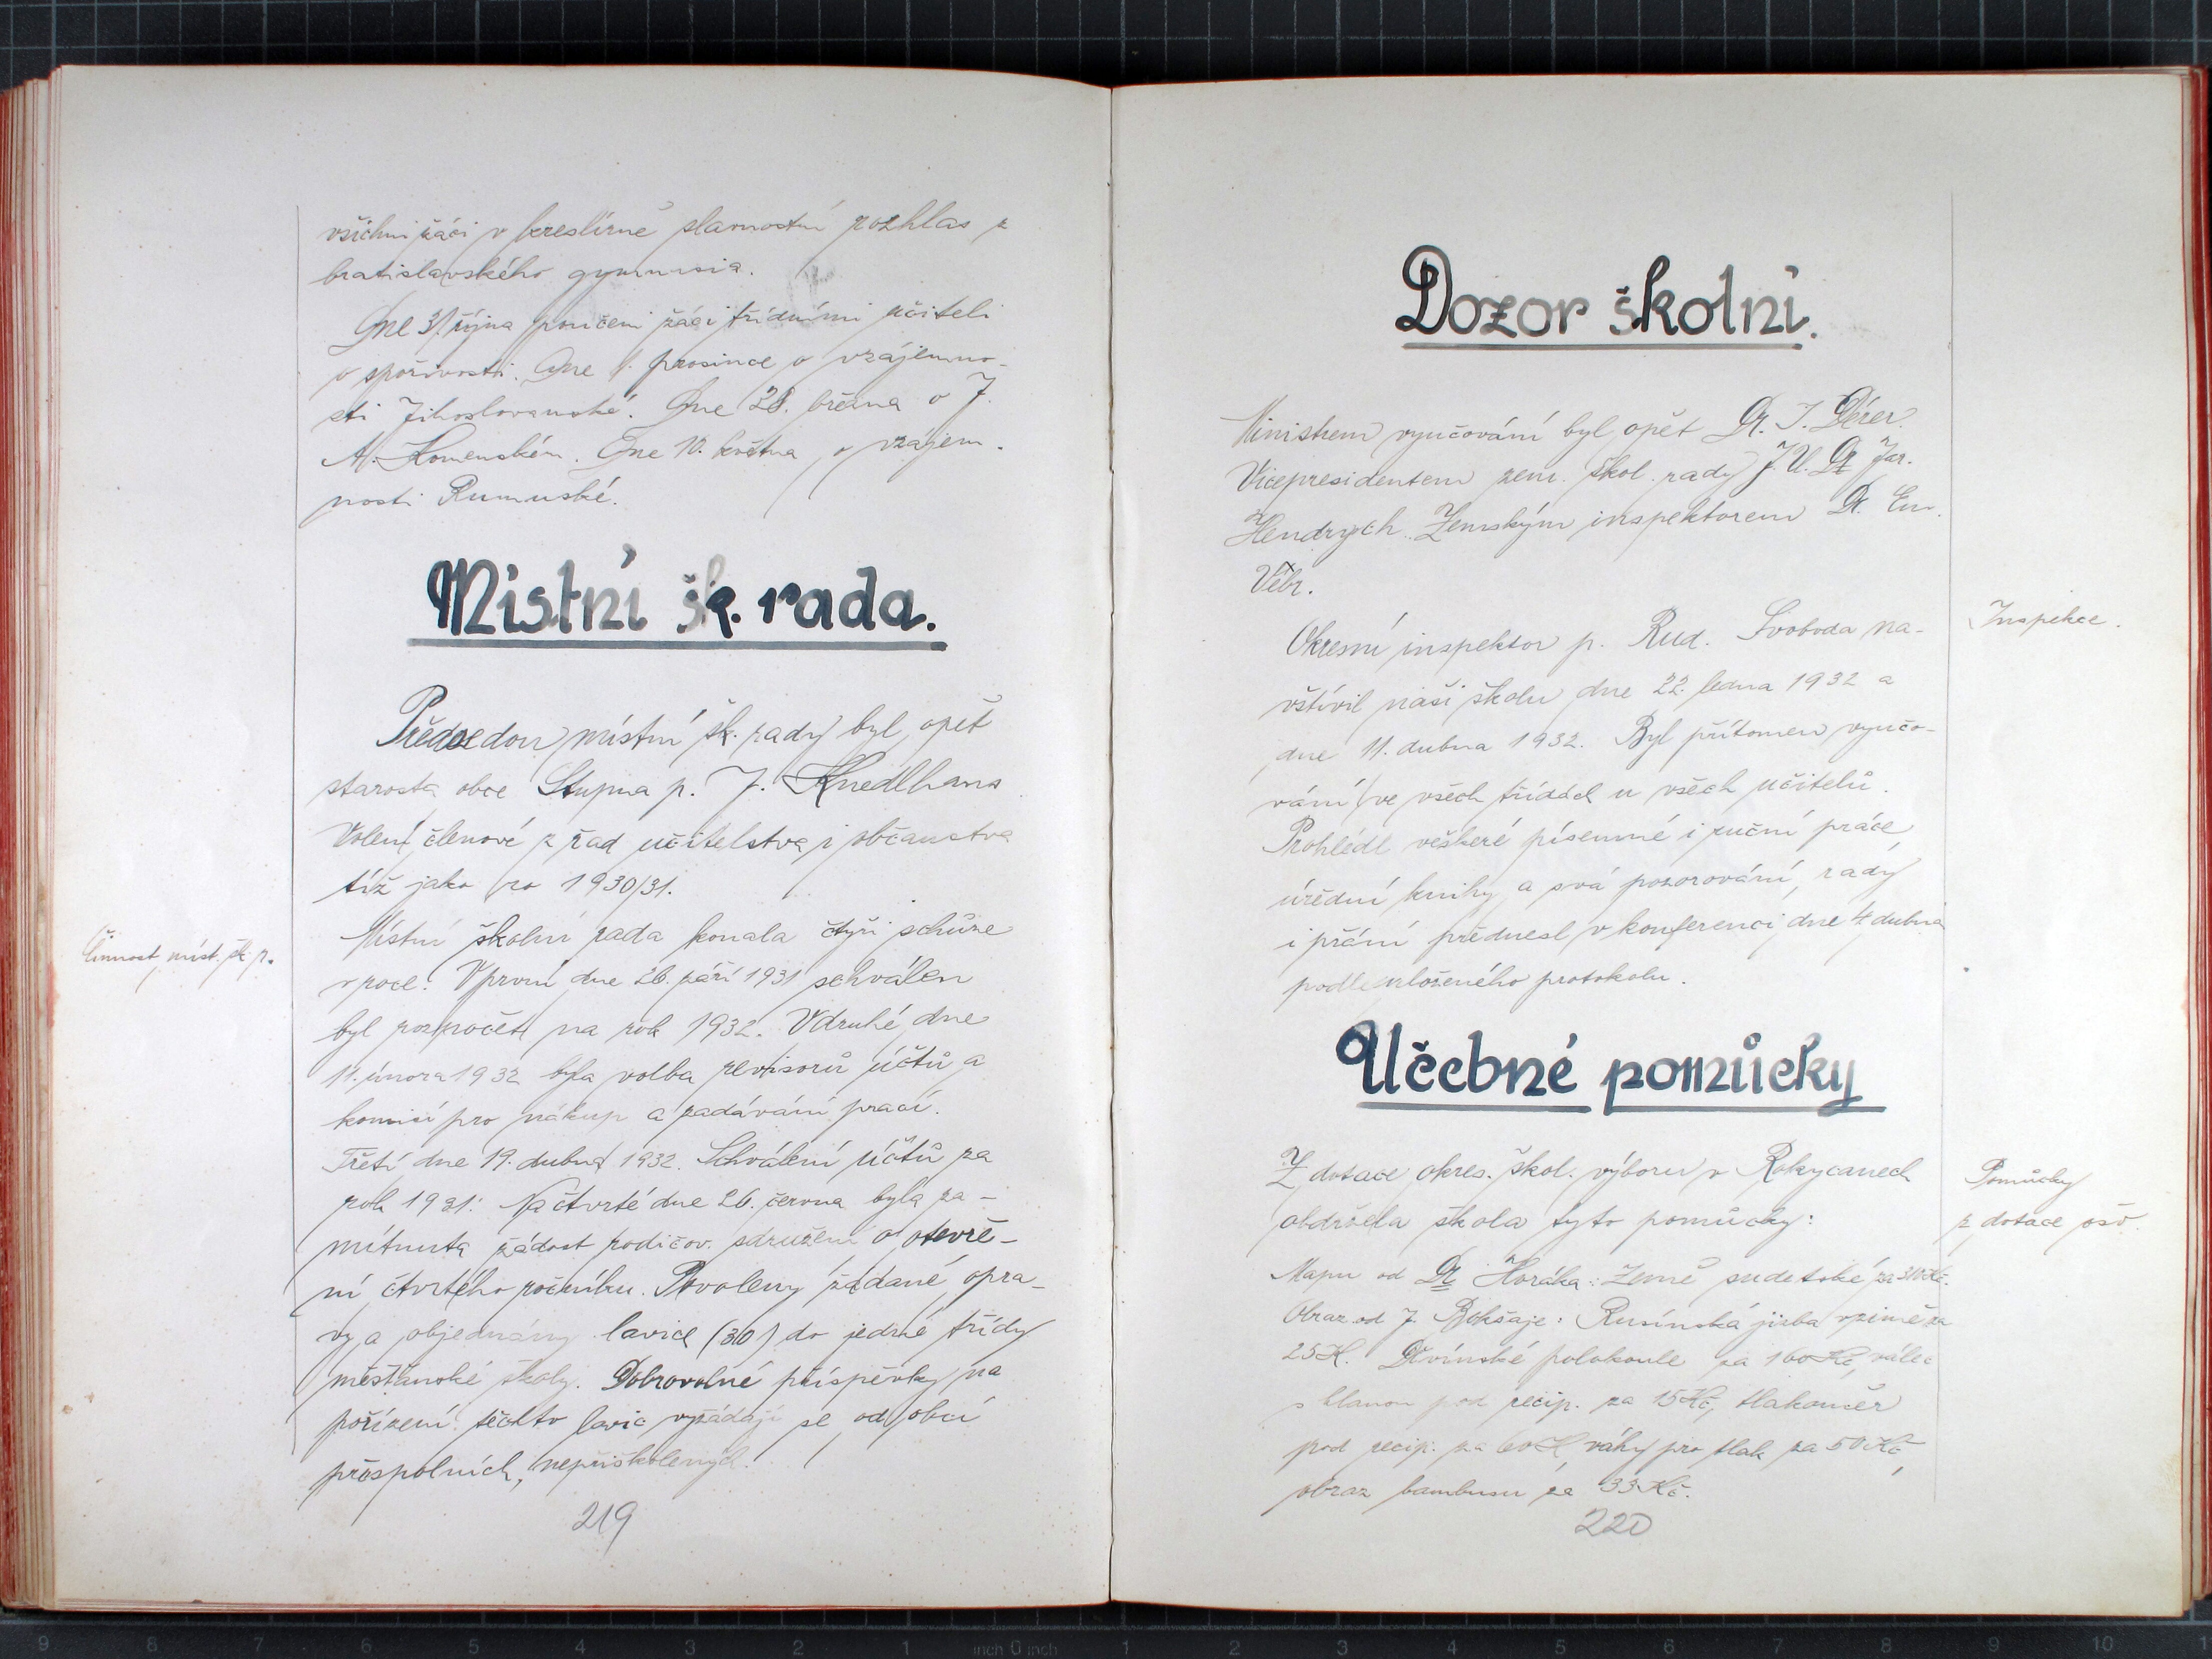 všichni žáci v kreslírně slavnostní rozhlas z
bratislavského gymnasia.
Dne 31. října poučeni žáci třídními učiteli
o spořivosti. Dne 1. prosince o vzájemno-
sti Jihoslovanské. Dne 28. března o J.
A. Komenském. Dne 10. května o vzájem-
nosti Rumunské.
Místní šk. rada.
Předsedou místní šk. rady byl opět
starosta obce Stupna p. J. Knedlhans
Volení členové z řad učitelstva i občanstva
tíž jako ro 1930/31.
Činnost míst. šk. r.
Místní školní rada konala čtyři schůze
v roce. V první dne 26. září 1931 schválen
byl rozpočet na rok 1932. V druhé dne
11. února 1932 byla volba revisorů účtů a
komisí pro nákup a zadávání prací.
Třetí dne 19. dubna 1932. Schválení účtů za
rok 1931. Na čtvrté dne 26. června byla za-
mítnuta žádost rodičov. sdružení o otevře-
ní čtvrtého ročníku. Povoleny žádané opra-
vy a objednány lavice (30) do jedné třídy
měšťanské školy. Dobrovolné příspěvky na
pořízení těchto lavic vyžádají se od obcí
přespolních, nepřiškolených.
219
Dozor školní.
Ministrem vyučování byl opět Dr. I. Dérer.
Vicepresidentem zem. škol. rady J. U. Dr Jar.
Hendrych. Zemským inspektorem Dr. Em.
Vébr.
Inspekce.
Okresní inspektor p. Rud. Svoboda na-
vštívil naši školu dne 22. ledna 1932 a
dne 11. dubna 1932. Byl přítomen vyučo-
vání ve všech třídách u všech učitelů.
Prohlédl veškeré písemné i ruční práce,
úřední knihy a svá pozorování, rady
i přání přednesl v konferenci dne 4. dubna
podle vloženého protokolu.
Učebné pomůcky
Pomůcky
z dotace ošv.
Z dotace okres. škol. výboru v Rokycanech
obdržela škola tyto pomůcky:
Mapu od Dr Horáka: Země sudetské za 310 Kč.
Obraz od J. Bokšaje: Rusínská jizba v zimě za
25 K. Děvínské polokoule za 160 Kč, válec
s blanou pod recip. za 15 Kč, tlakoměr
pod recip. za 60 K, váhy pro tlak za 50 Kč,
obraz bambusu za 33 Kč.
220